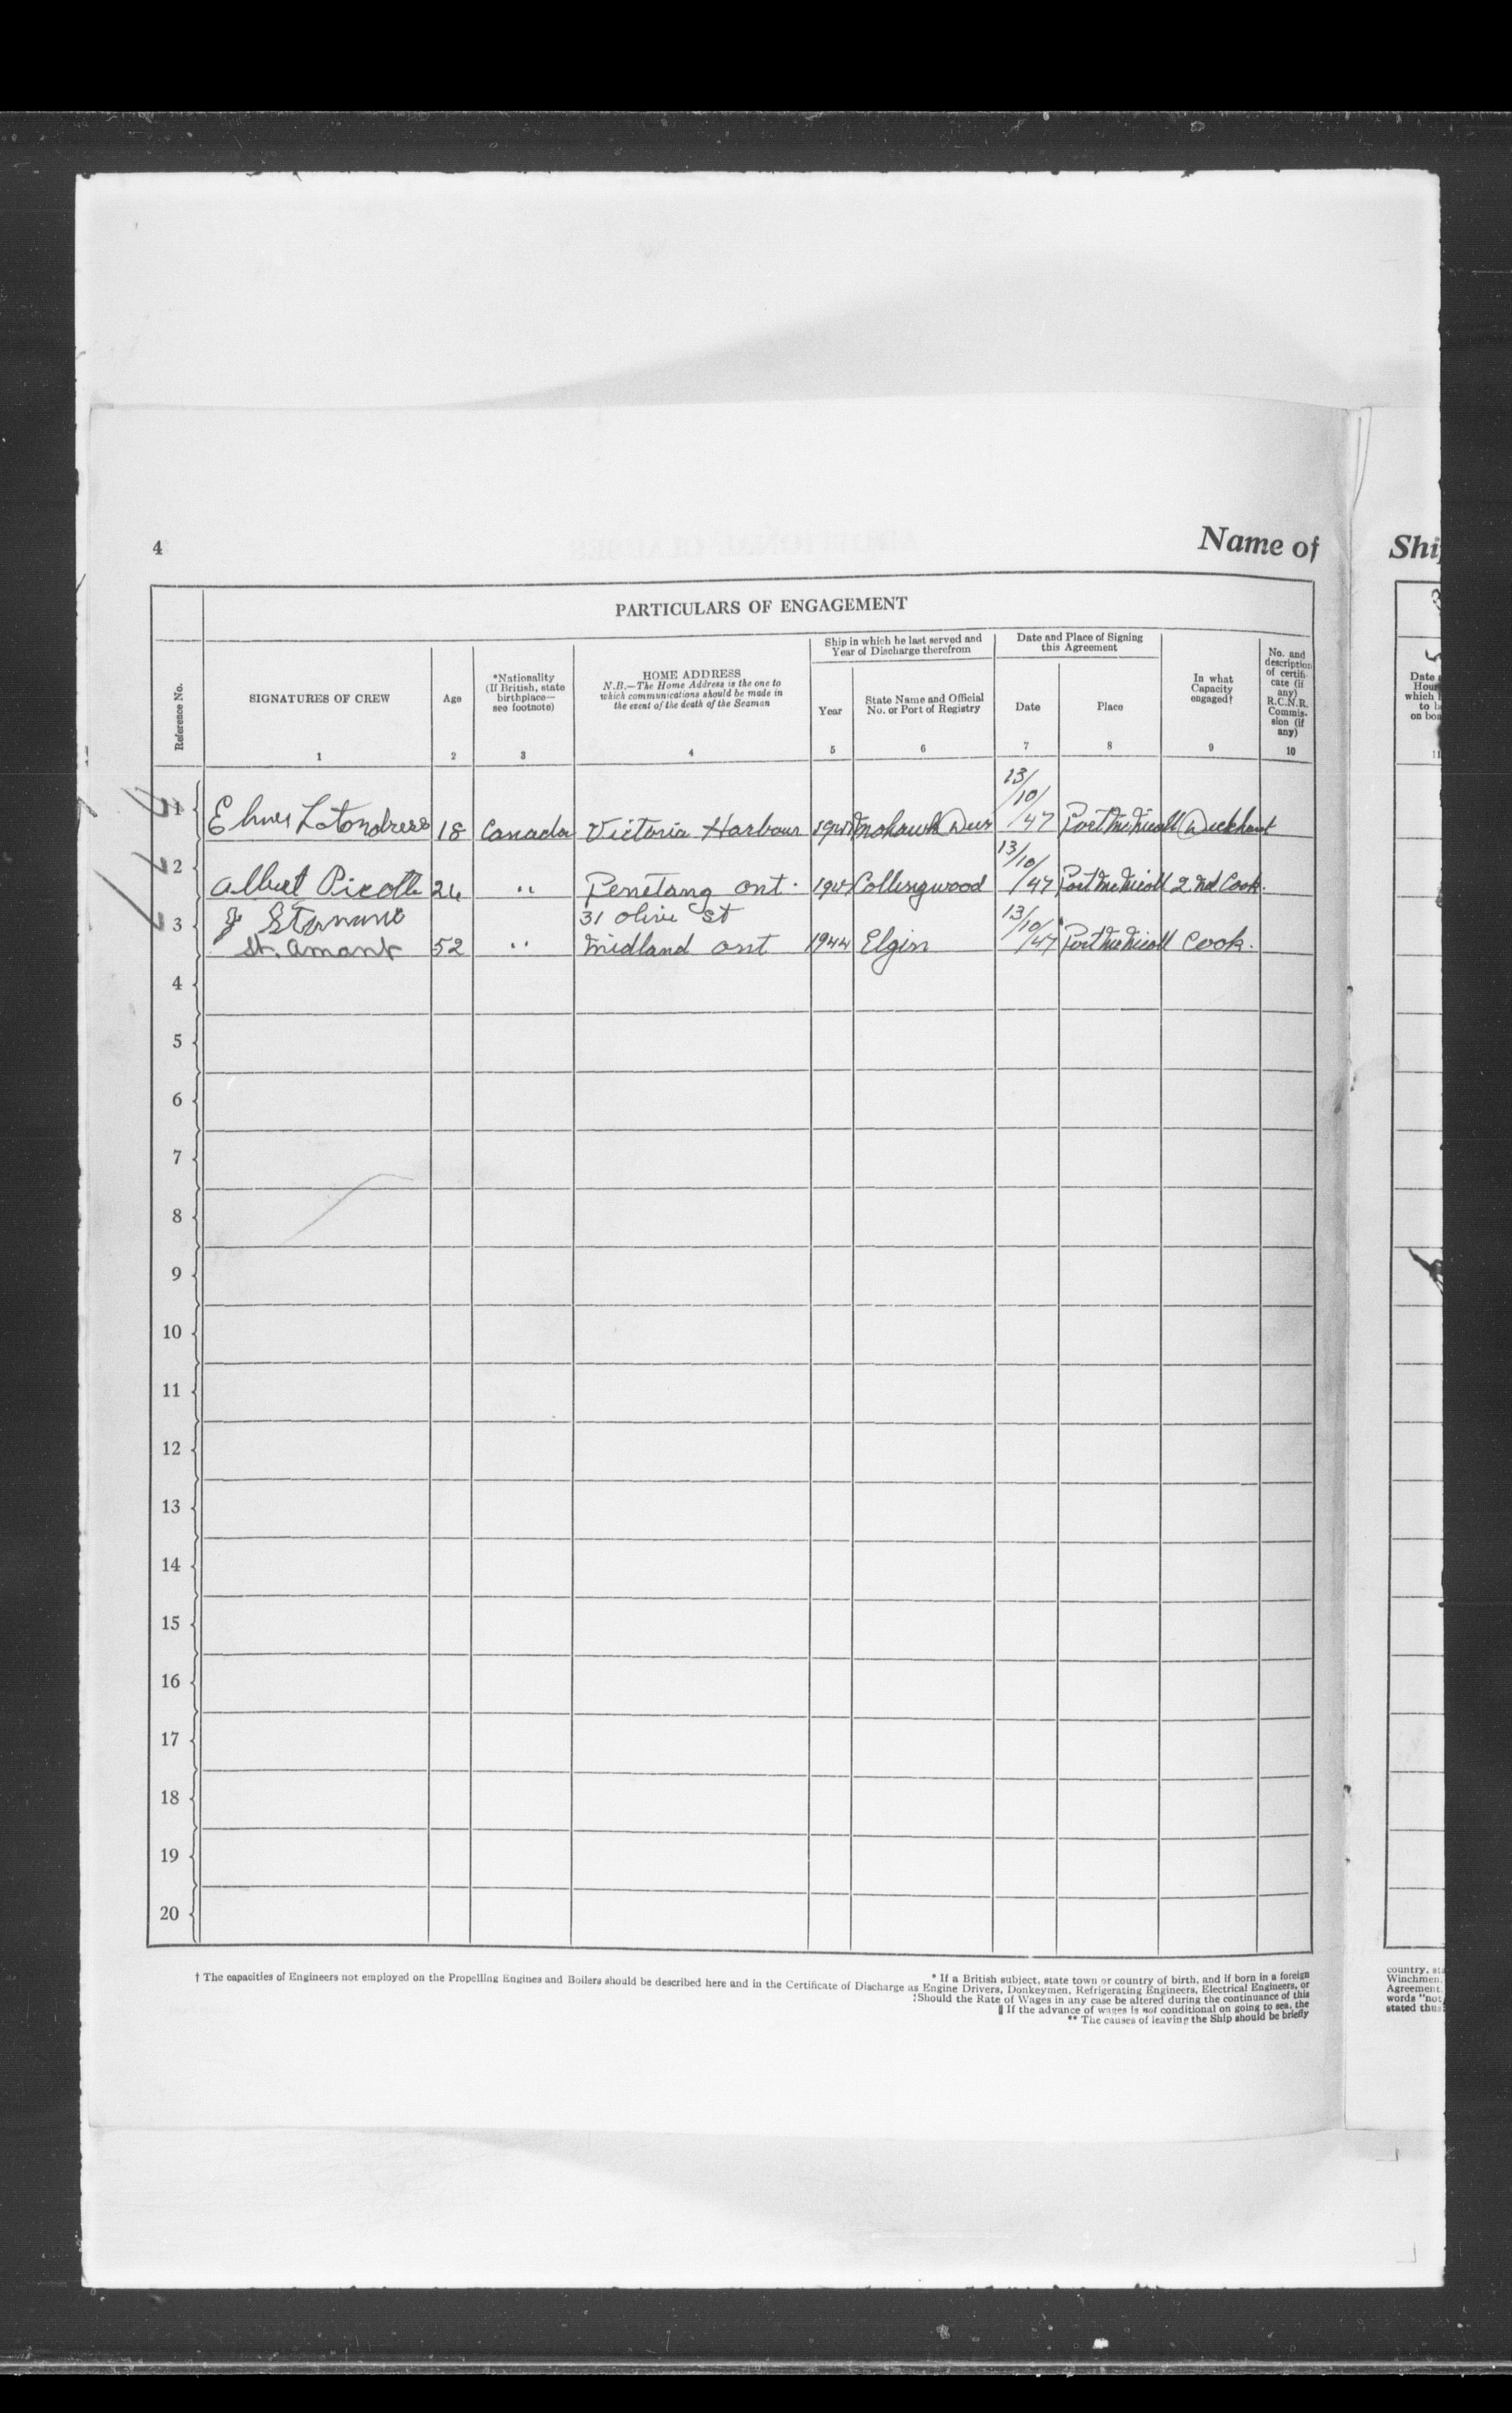 4
Name of
PARTICULARS OF ENGAGEMENT
Reference No.
SIGNATURES OF CREW
1
Age
2
*Nationality
(If British, state
birthplace—
see footnote)
3
HOME ADDRESS
N.B.—The Home Address is the one to
which communications should be made in
the event of the death of the Seaman
4
Ship in which he last served and
Year of Discharge therefrom
Year
5
State Name and Official
No. or Port of Registry
6
Date and Place of Signing
this Agreement
Date
7
Place
8
In what
Capacity
engaged†
9
No. and
description
of certifi-
cate (if
any)
R.C.N.R.
Commis-
sion (if
any)
10
1 Elmer Latondress 18 Canada Victoria Harbour Mohawk Deer 13/10/47 Port McNicoll Deckhand
2 Albert Picotte 24 " Penetang Ont. Collingwood 13/10/47 Port McNicoll 2nd Cook.
3 J 31 Olive St
St. Amant 52 " Midland Ont 1944 Elgin 13/10/47 Port McNicoll Cook.
4
5
6
7
8
9
10
11
12
13
14
15
16
17
18
19
20
† The capacities of Engineers not employed on the Propelling Engines and Boilers should be described here and in the Certificate of Discharge as Engine Drivers, Donkeymen, Refrigerating Engineers, Electrical Engineers, or
* If a British subject, state town or country of birth, and if born in a foreign
‡Should the Rate of Wages in any case be altered during the continuance of this
‖ If the advance of wages is not conditional on going to sea, the
** The causes of leaving the Ship should be briefly
Shi
Date
Hour
which
to b
on boa
11
country, sta
Winchmen,
Agreement,
words "not
stated thus